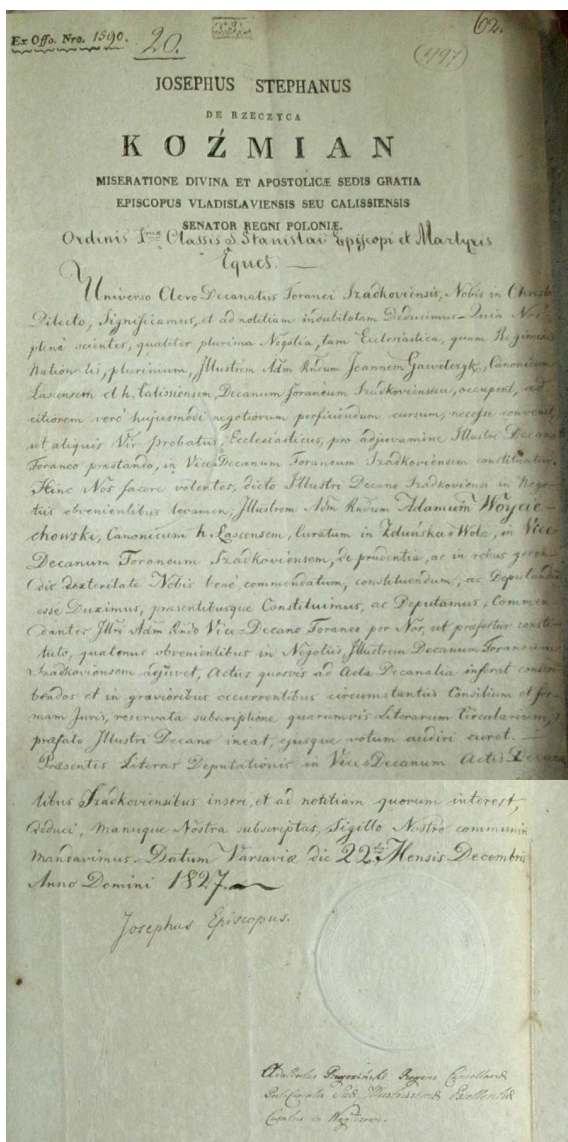 Ex Offo. Nro. 1590.
20.
62.
(497)
JOSEPHUS STEPHANUS
DE RZECZYCA
KOŹMIAN
MISERATIONE DIVINA ET APOSTOLICÆ SEDIS GRATIA
EPISCOPUS VLADISLAVIENSIS SEU CALISSIENSIS
SENATOR REGNI POLONIÆ.
Ordinis Imæ Classis S. Stanislai Episcopi et Martyris
Eques.
Universo Clero Decanatus Foranei Szadkoviensis, Nobis in Christo
Dilecto, Significamus, et ad notitiam indubitatam Deducimus Quia Nos
plenè scientes, qualiter plurima Negotia, tam Ecclesiastica, quam Regiminis
Nationalis, plurimum, Illustrem Adm Rndum Joannem Gawełczyk, Canonicum
Lascensem et h. Calissiensem, Decanum foraneum Szadkoviensem, occupent, ad
citiorem verò hujusmodi negotiorum perficiendum cursum, necesse convenit,
ut aliquis Vir probatus, Ecclesiasticus, pro adjuvamine Illustri Decano
Foraneo præstando, in ViceDecanum Foraneum Szadkoviensem constituatur.
Hinc Nos facere volentes, dicto Illustri Decano Szadkoviensi in Nego-
tiis obvenientibus levamen; Illustrem Adm Rndum Adamum Woycie-
chowski, Canonicum h. Lascensem, Curatum in Zduńska Wola, in Vice
Decanum Foraneum Szadkoviensem, de prudentia, ac in rebus geren-
dis dexteritate Nobis benè commendatum, constituendum, ac Deputandum
esse Duximus, præsentibusque Constituimus, ac Deputamus, Commen-
dantes Illri Adm Rndo Vice-Decano Foraneo per Nos, ut præfertur consti-
tuto, quatenus obvenientibus in Negotiis, Illustrem Decanum Foraneum
Szadkoviensem adjuvet, Actus quosvis ad Acta Decanalia inferat conser-
bendos et in gravioribus occurrentibus circumstantiis Consilium et for-
mam Juris, reservata subscriptione quarumvis Literarum Circularium,
præfato Illustri Decano ineat, ejusque votum audiri curet.
Præsentes Literas Deputationis in ViceDecanum Actis Decana
libus Szadkoviensibus inseri, et ad notitiam quorum interest,
deduci, manuque Nostra subscriptas, Sigillo Nostro communiri
mandavimus. Datum Varsaviæ die 22 Mensis Decembris
Anno Domini 1827.
Josephus Episcopus.